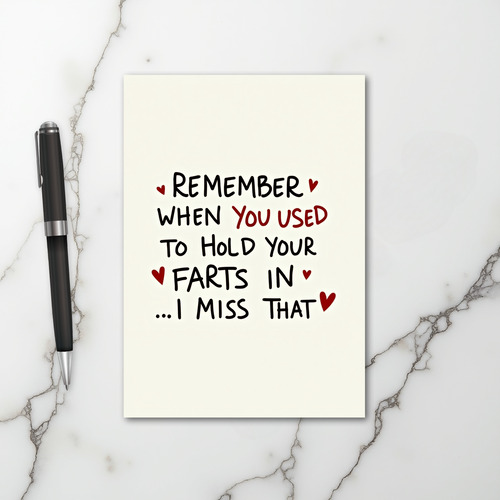 REMEMBER
WHEN YOU USED
TO HOLD YOUR
FARTS IN
...I MISS THAT